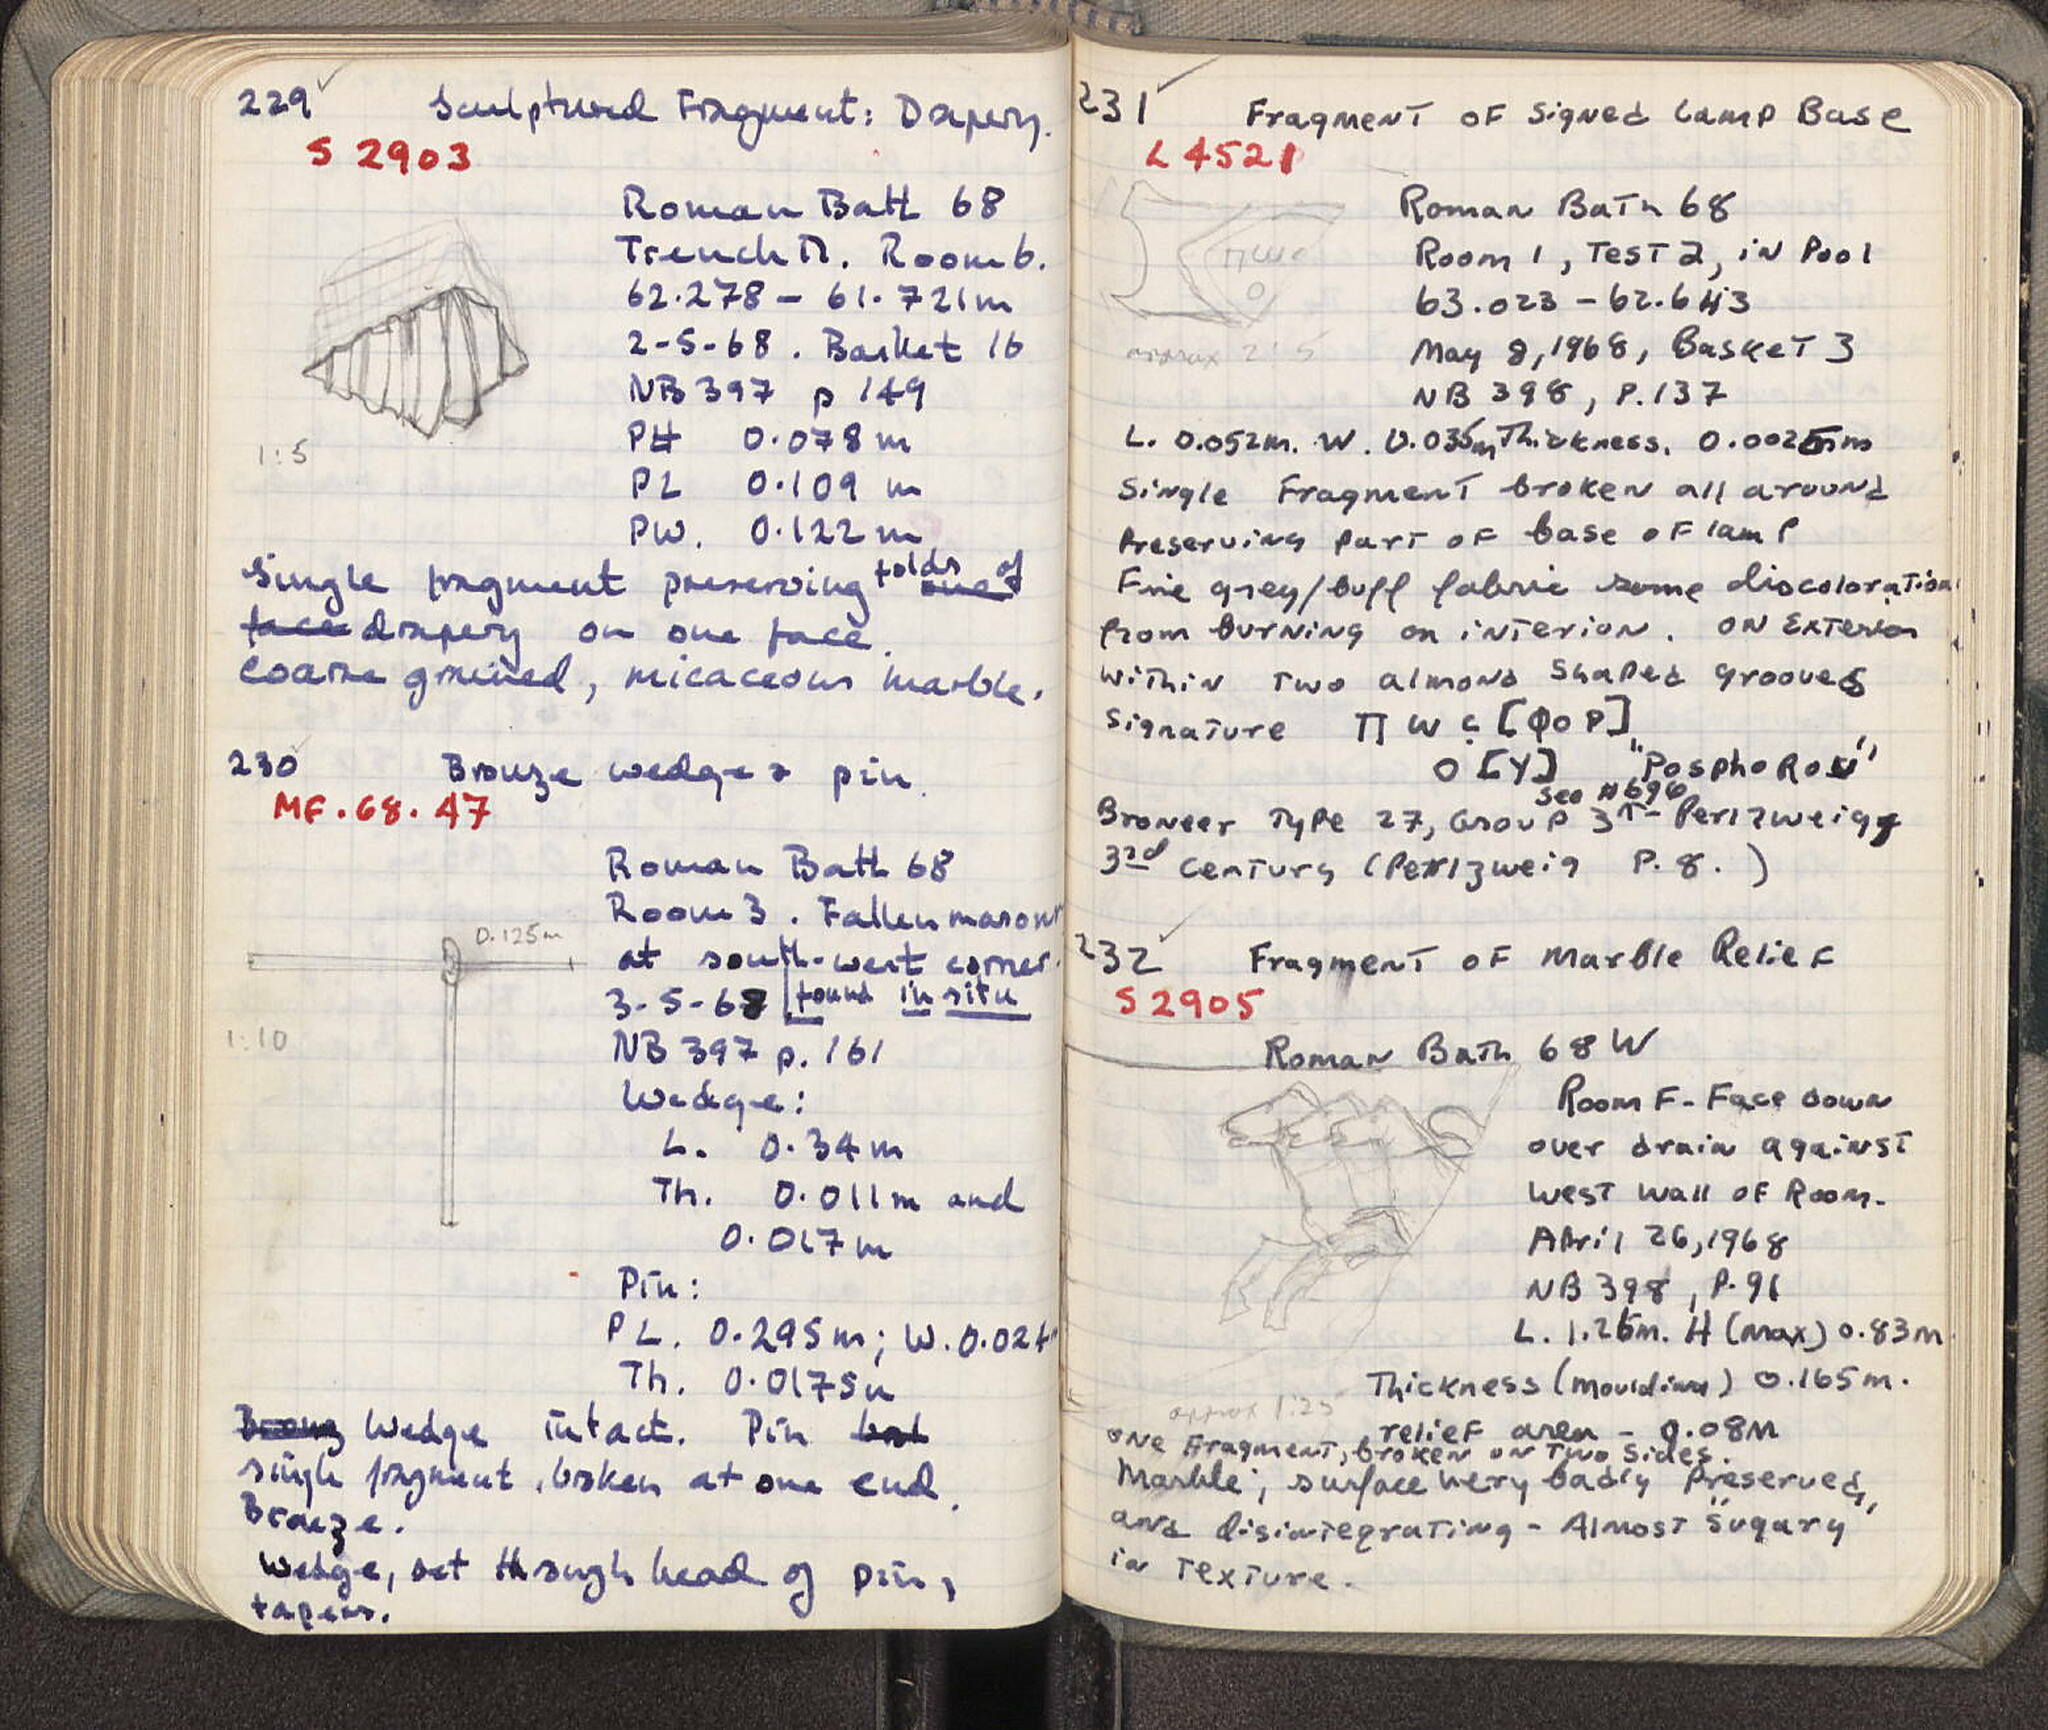 229 Sculptured Fragment: Drapery.
S 2903
Roman Bath 68
Trench Π. Room 6.
62.278 – 61.721m
2-5-68. Basket 16
NB 397 p 149
PH 0.078 m
1:5
PL 0.109 m
PW. 0.122 m
Single fragment preserving folds of one of
face drapery on one face.
Coarse grained, micaceous marble.
230 Bronze wedge & pin.
MF.68.47
Roman Bath 68
Room 3. Fallen masonr
0.125m
at south-west corner.
3-5-68 found in situ
1:10
NB 397 p. 161
Wedge:
L. 0.34 m
Th. 0.011m and
0.017m
Pin:
PL. 0.295m; W. 0.024
Th. 0.0175m
Wedge intact. Pin
single fragment, broken at one end.
Bronze.
Wedge, set through head of pin,
tapers.
231 Fragment of Signed Lamp Base
L 4521
Roman Bath 68
Room 1, Test 2, in Pool
ΠWC
O
63.023 – 62.643
approx 2:5
May 8, 1968, Basket 3
NB 398, P. 137
L. 0.052m. W. 0.035m Thickness. 0.0025m
Single Fragment broken all around
Preserving part of base of lamp
Fine grey/buff fabric some discoloration
from burning on interior. On Exterior
within two almond shaped grooves
signature Π W Ç [Φ O P]
O [Y] "Posphorou"
see #696
Broneer Type 27, Group 3 - Perlzweig
3rd century (Perlzweig P. 8.)
232 Fragment of Marble Relief
S 2905
Roman Bath 68 W
Room F - Face down
over drain against
West wall of Room.
April 26, 1968
NB 398, P. 91
L. 1.26m. H (max) 0.83m
Thickness (moulding) 0.165m.
approx 1:25
relief area – 0.08M
one Fragment, broken on two sides.
Marble; surface very badly preserved,
and disintegrating - Almost "sugary"
in texture.